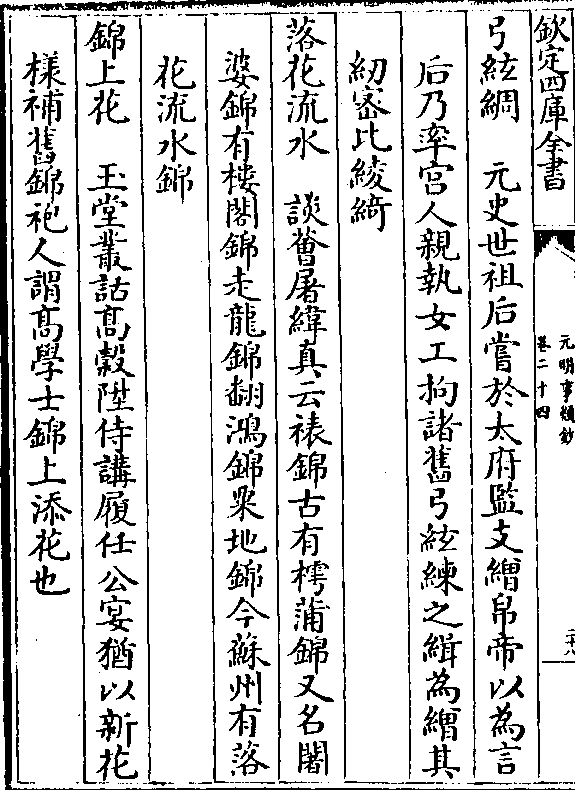 欽定四庫全書
元明事類鈔
卷二十四
二十八
弓絃綢　元史世祖后嘗於太府監支繒帛帝以為言
后乃率宮人親執女工拘諸舊弓絃練之緝為繒其
紉宻比綾綺
落花流水　談薈屠緯真云裱錦古有樗蒲錦又名闍
婆錦有樓閣錦走龍錦翻鴻錦衆地錦今蘇州有落
花流水錦
錦上花　玉堂叢話髙穀陞侍講履任公宴猶以新花
様補舊錦袍人謂髙學士錦上添花也